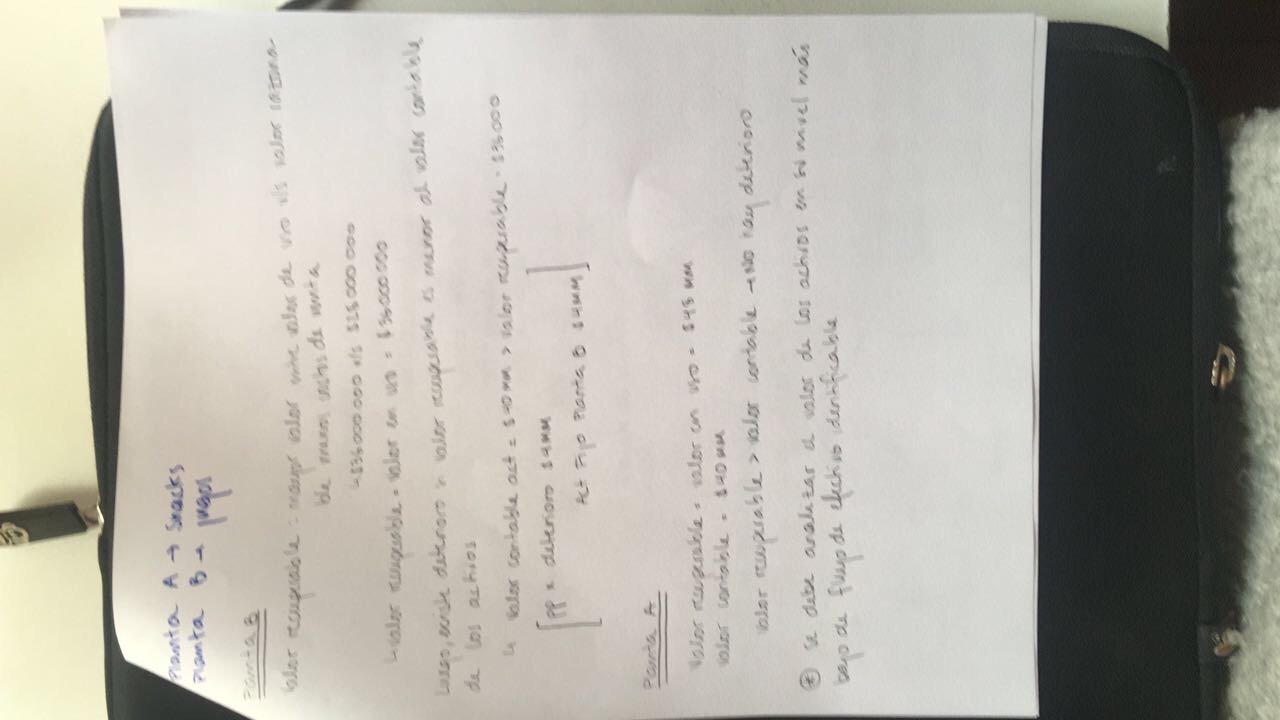 Planta A → Snacks
Planta B → jugos
Planta B
Valor recuperable: mayor valor entre valor de uso v/s valor razona-
ble menos costos de venta
↳ $36.000.000 v/s $18.000.000
↳ valor recuperable = valor en uso = $36.000.000
Luego, existe deterioro valor recuperable es menor al valor contable
de los activos
↳ Valor contable act = $40 MM > valor recuperable = $36.000
[PP x deterioro $4MM
Act Fijo Planta B $4MM]
Planta A
Valor recuperable = valor en uso = $48 MM
Valor contable = $40 MM
valor recuperable > valor contable → No hay deterioro
* Se debe analizar el valor de los activos en su nivel más
bajo de flujo de efectivo identificable